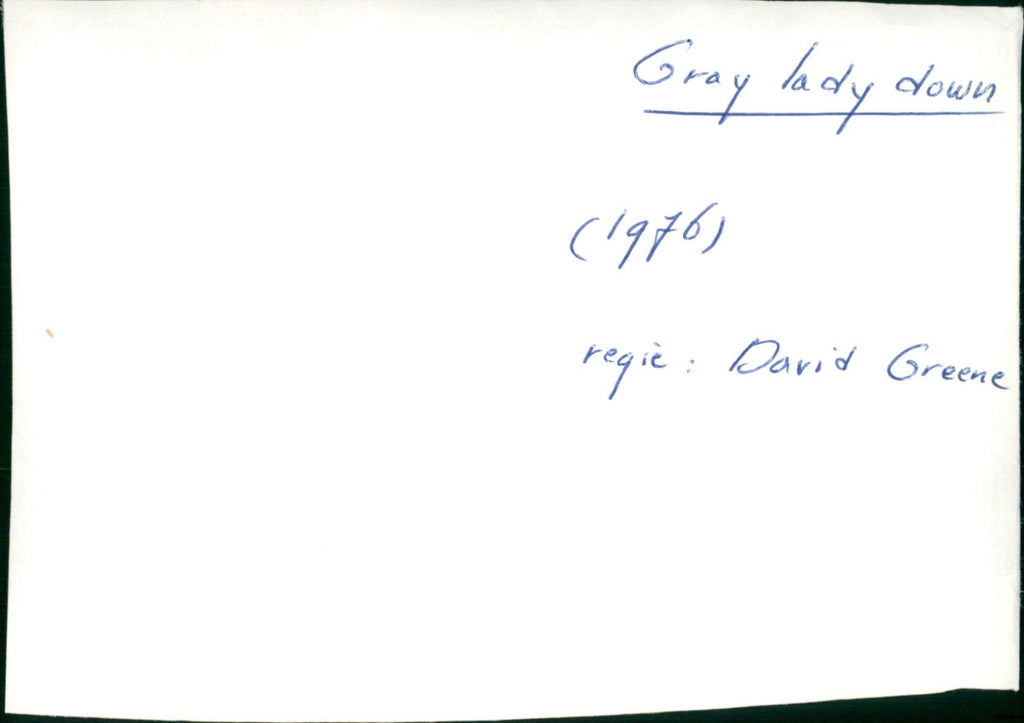 Gray lady down
(1976)
regie: David Greene